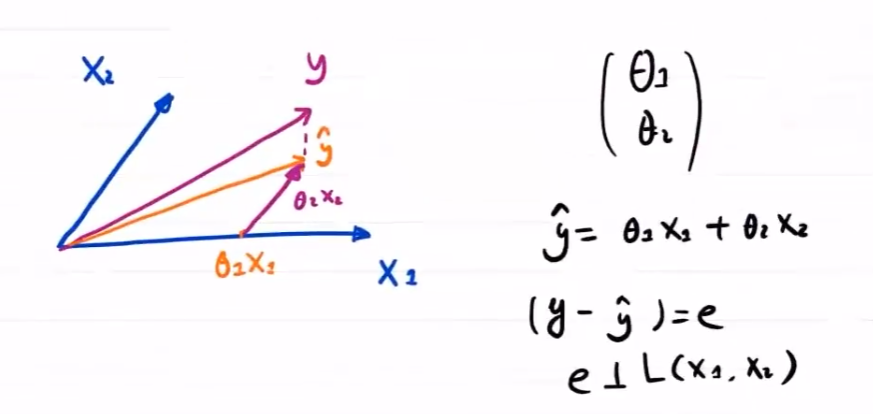 X₂
y
ŷ
θ₂x₂
θ₁x₁
X₁
(θ₁
θ₂)
ŷ = θ₁x₁ + θ₂x₂
(y - ŷ) = e
e ⊥ L(x₁, x₂)